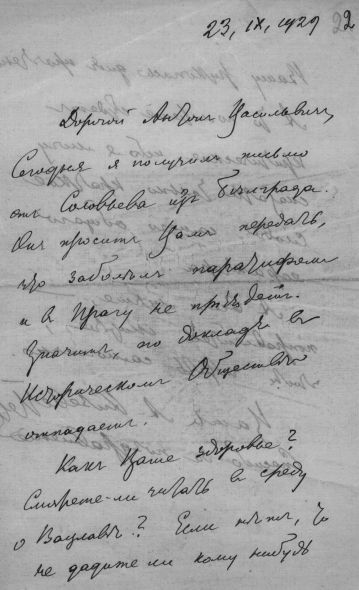 23, IX, 1929 22
Дорогой Антонъ Васильевич,
Сегодня я получилъ письмо
отъ Соловьева изъ Бѣлграда.
Онъ проситъ Вамъ передать,
что заболѣлъ паратифомъ
и в Прагу не пріѣдетъ.
Значитъ, его докладъ в
Историческомъ Обществѣ
отпадаетъ.
Какъ Ваше здоровье?
Сможете-ли читать в среду
о Вацлавѣ? Если нѣтъ, то
не дадите ли кому нибудь